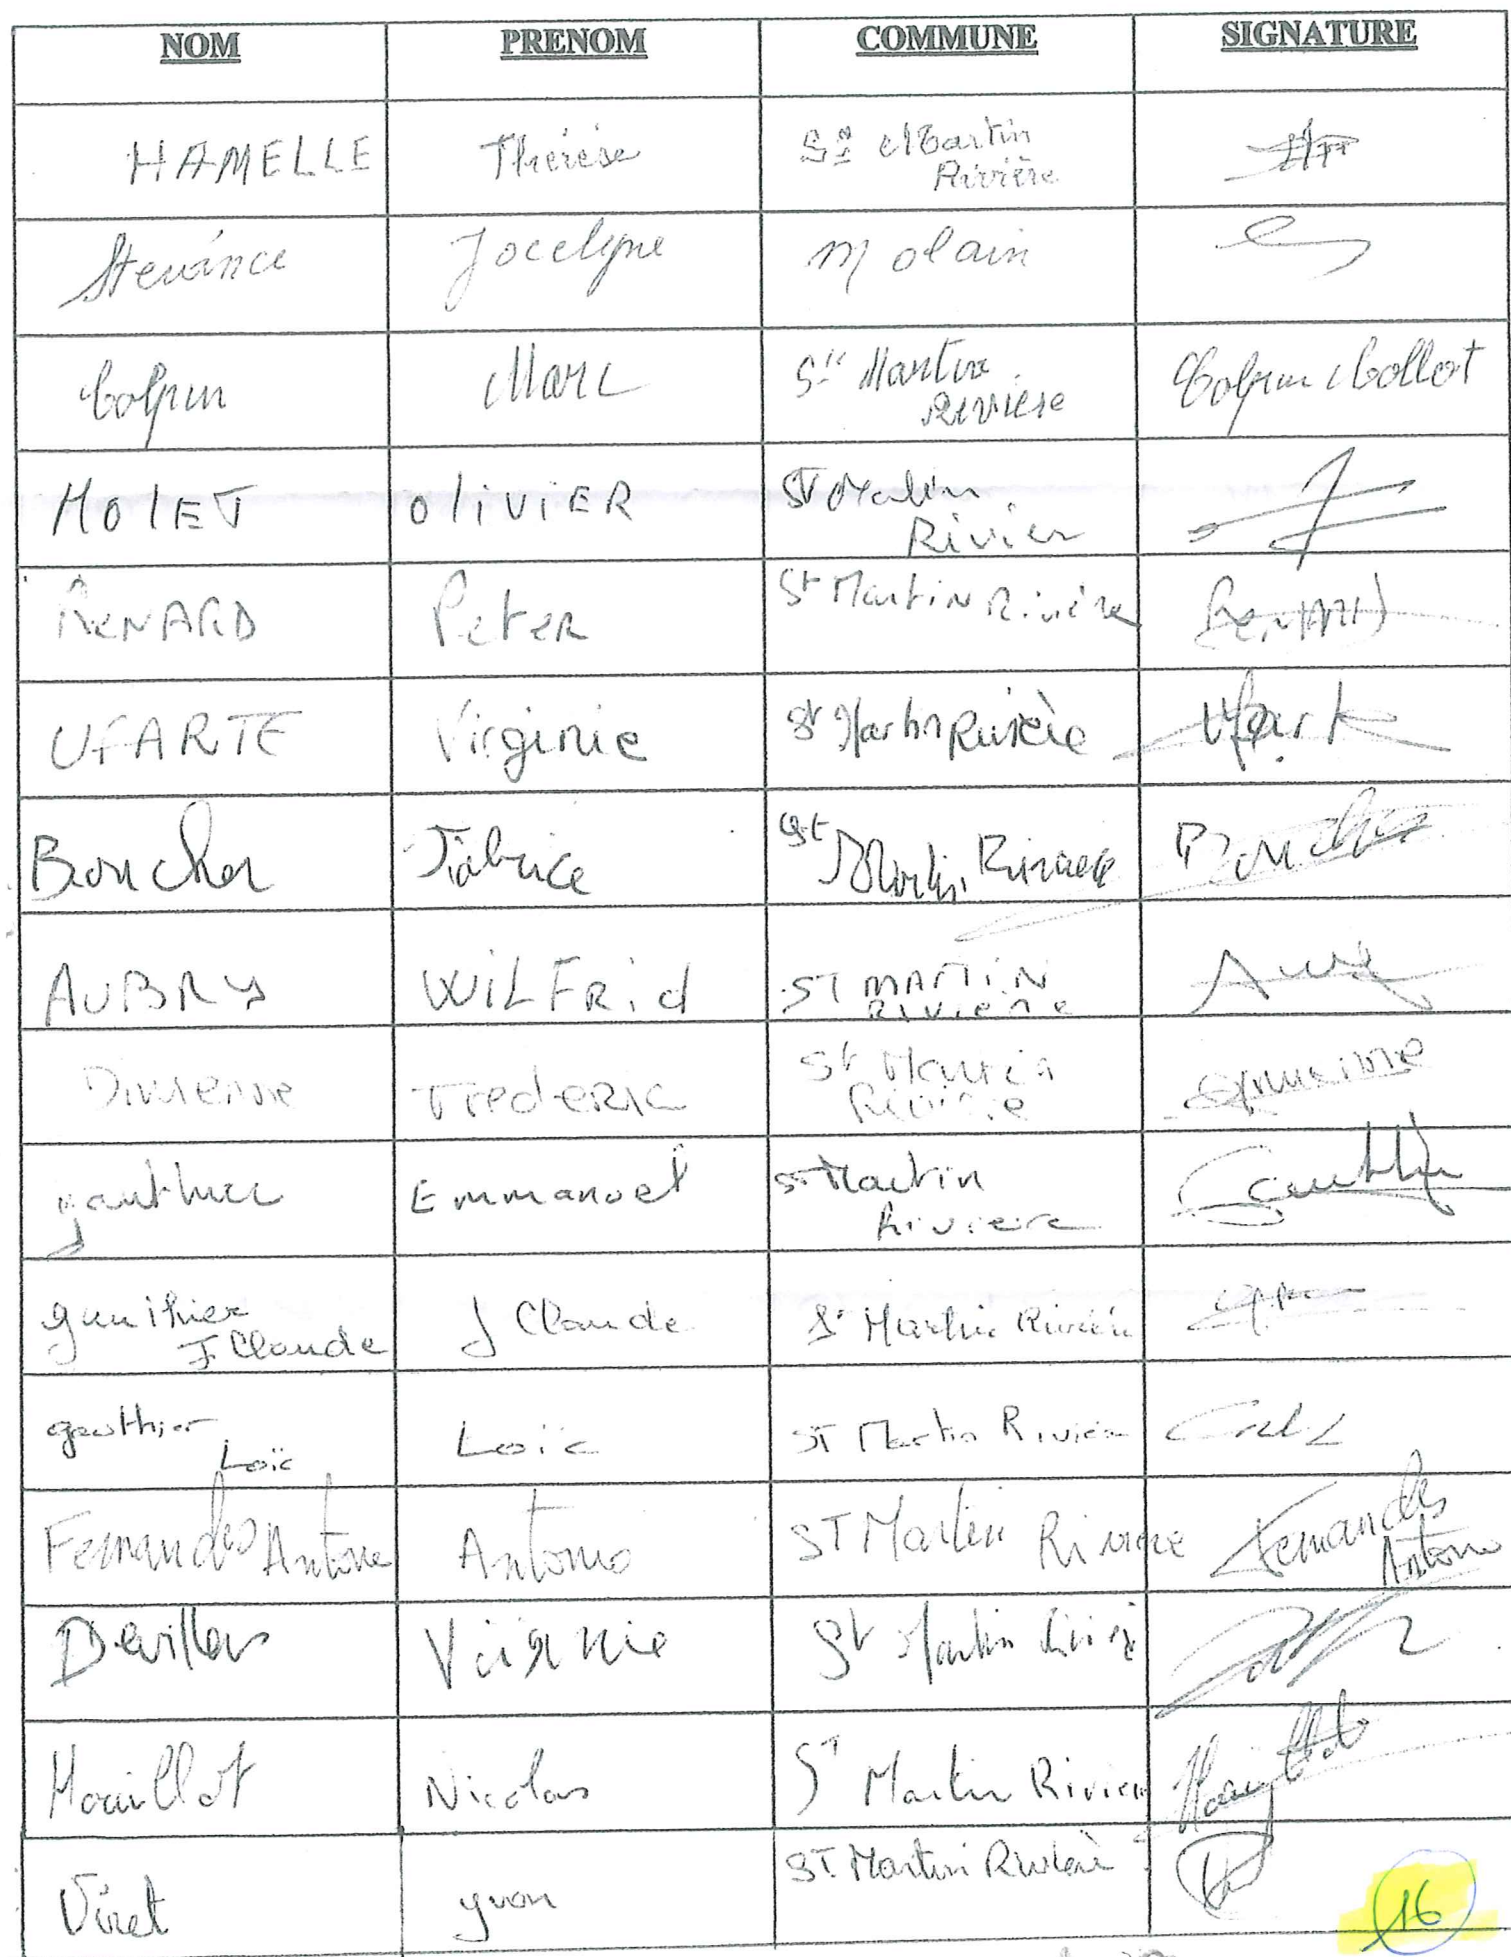 NOM PRENOM COMMUNE SIGNATURE
HAMELLE Thérèse St Martin
Rivière
Stevance Jocelyne Molain
Colpin Marc St Martin
Rivière Colpin Collot
MOlET OliViER St Martin
Rivier
ReNARD PeteR St MartiN Rivière RENARD
UFARTE Virginie St Martin Rivière Ufart
Boucher Fabrice St Martin Riviere Boucher
AUBRY WiLFRid ST MARTiN
RIVIERE
FredeRic St Martin
Riviere
gauthier Emmanuel St Martin
Riviere Gauthier
gauthier
J Claude J Claude St Martin Rivière
gauthier
Loïc Loïc ST Martin Riviere
Fernandes Antonio Antonio ST Martin Riviere Fernandes
Antonio
Deviller Virginie St Martin Riviè
Mouillot Nicolas ST Martin Riviere
Viret yvon ST Martin Rivière
16